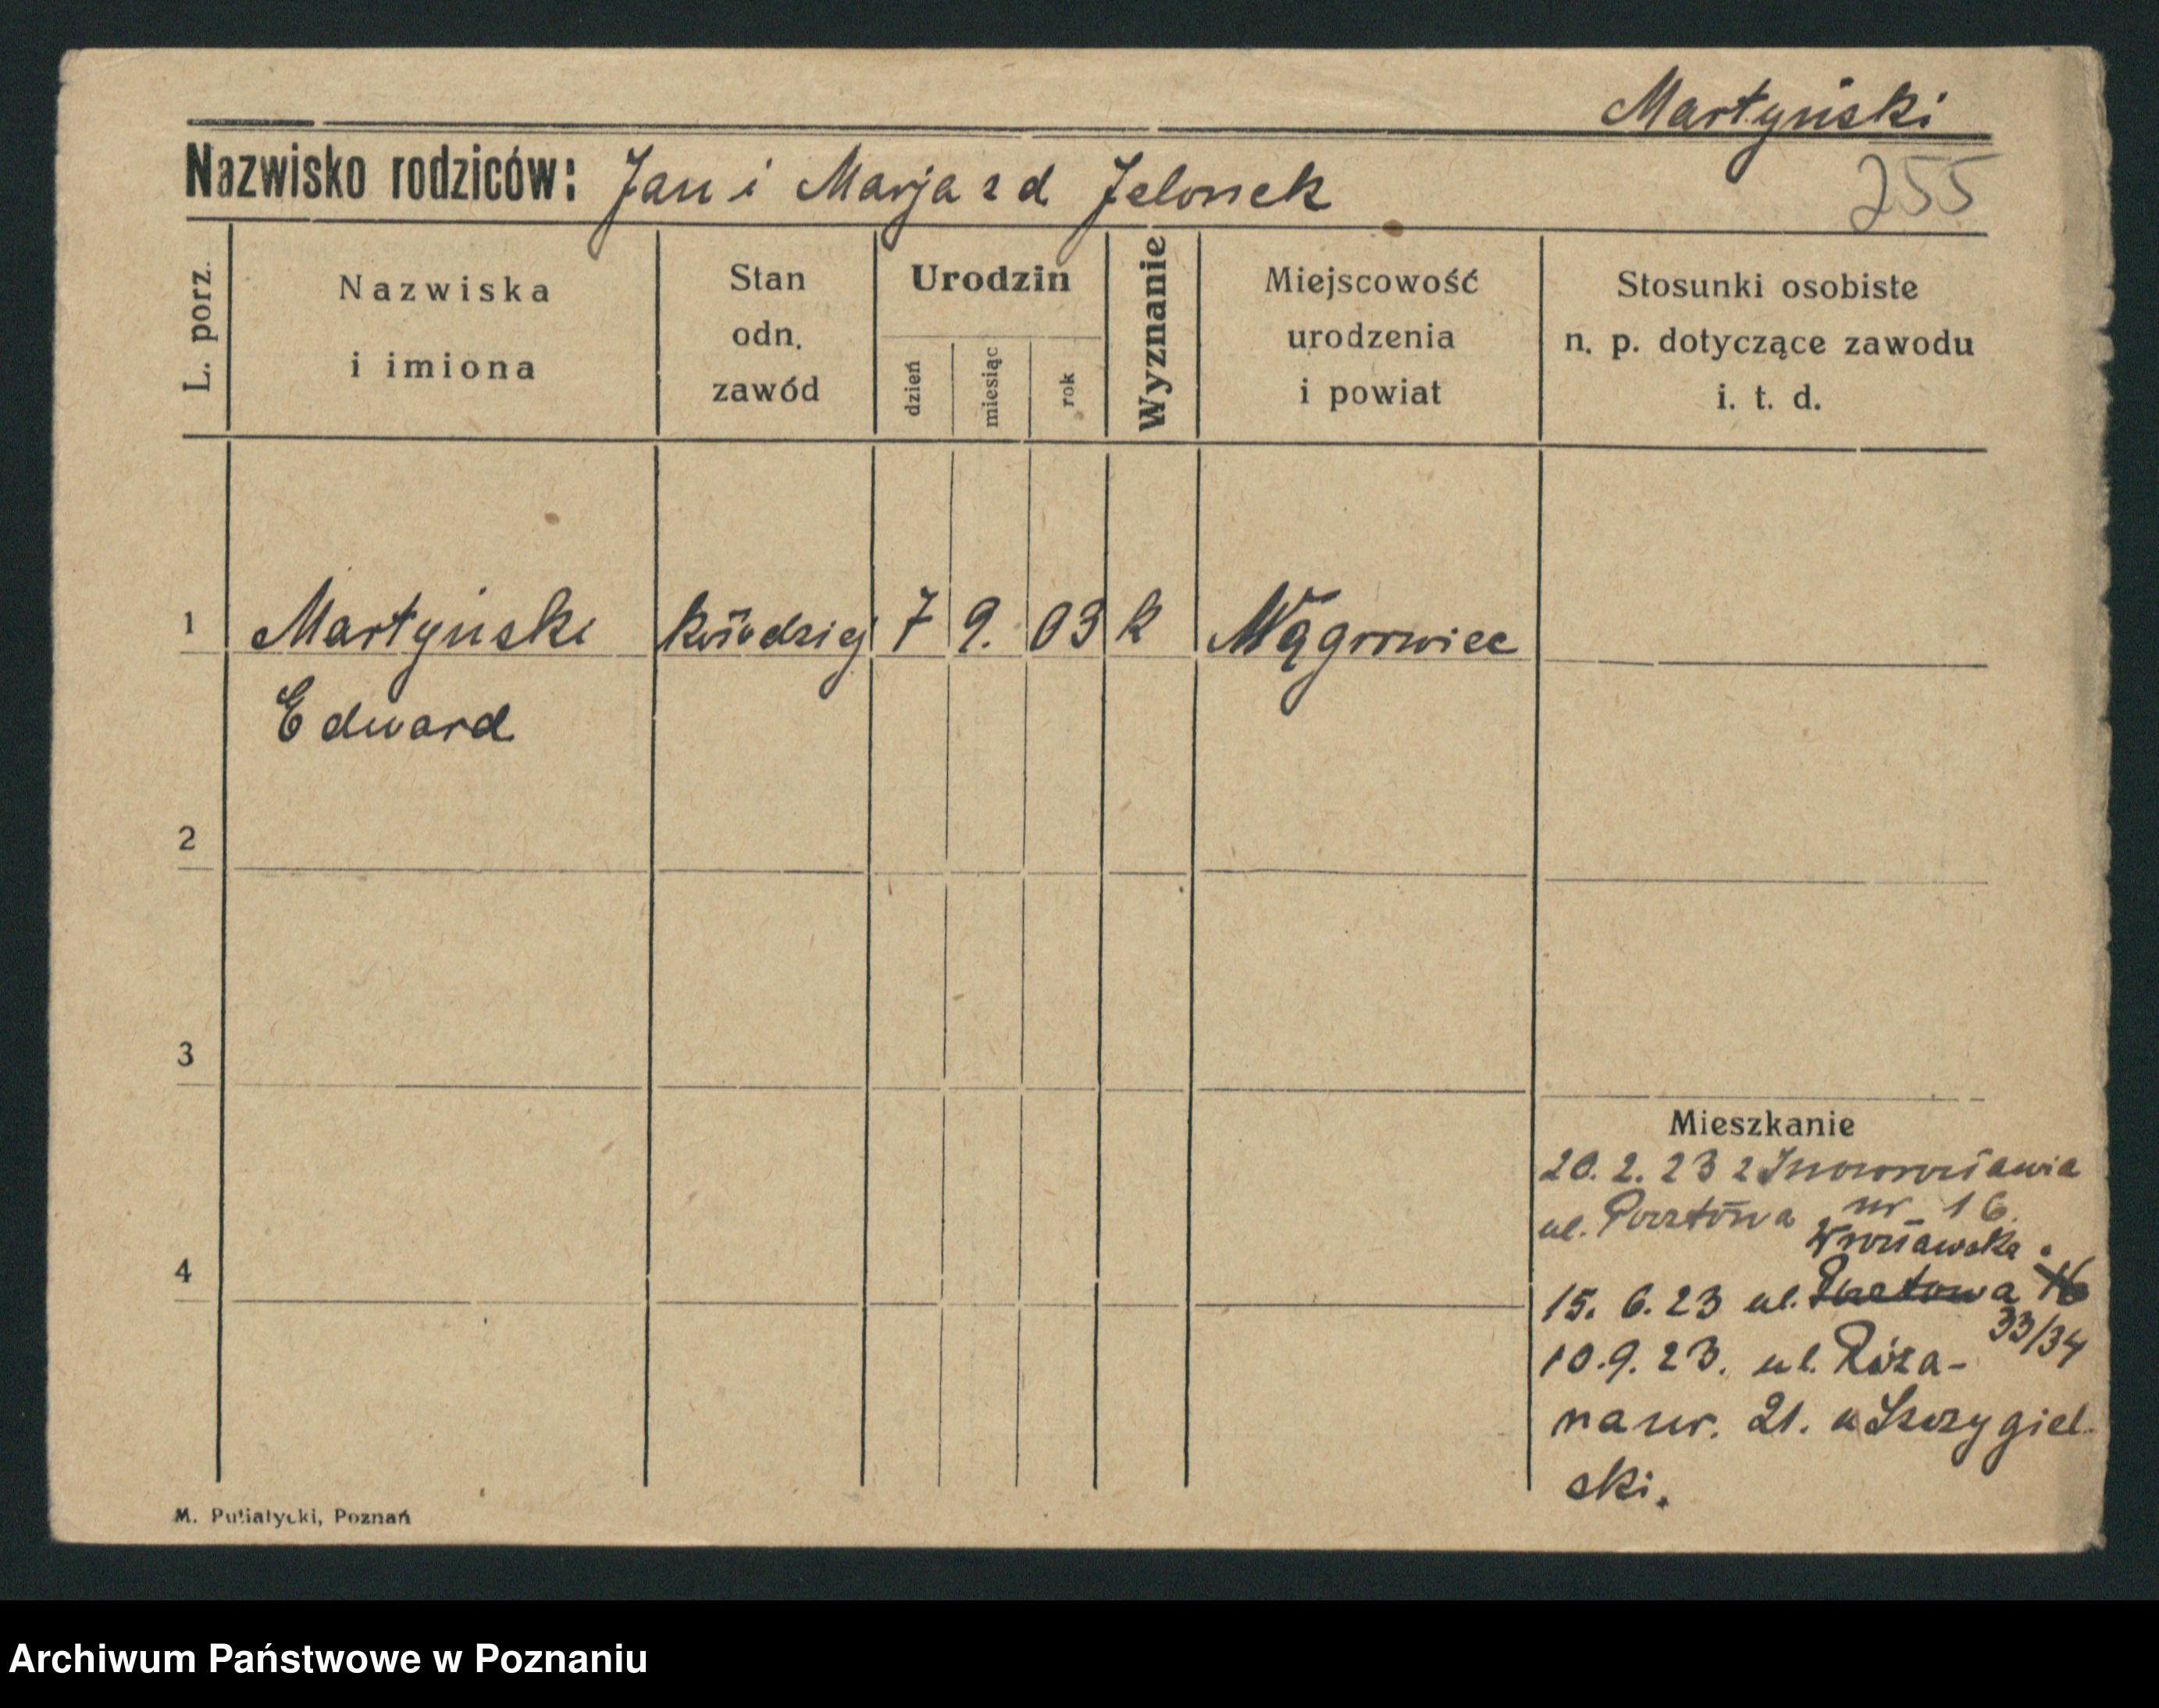 Martyński
Nazwisko rodziców: Jan i Marja z d Jelonek
255
L. porz.
Nazwiska
i imiona
Stan
odn.
zawód
Urodzin
dzień
miesiąc
rok
Wyznanie
Miejscowość
urodzenia
i powiat
Stosunki osobiste
n. p. dotyczące zawodu
i. t. d.
1 Martyński kołodziej 7 9. 03 k Wągrowiec
Edward
2
3
4
Mieszkanie
20. 2. 23 z Inowrocławia
ul. Pocztowa nr 16.
Wrocławska
15. 6. 23 ul. Pocztowa 16
33/34
10. 9. 23. ul. Róża-
na nr. 21. u Szczygiel-
ski.
M. Putiatycki, Poznań
Archiwum Państwowe w Poznaniu